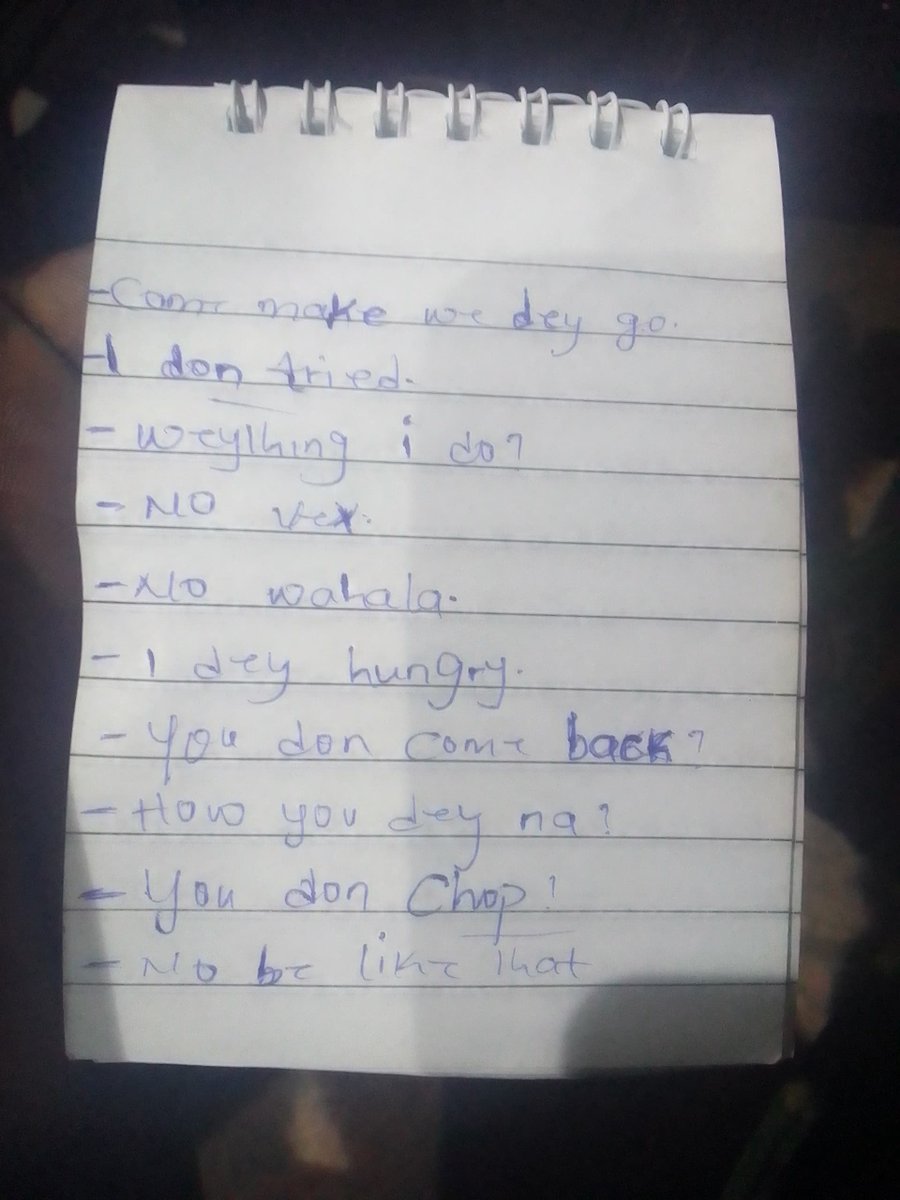 - Come make we dey go.
- I don tried.
- weylhing i do?
- NO vex.
- No wahala.
- I dey hungry.
- You don come back?
- How you dey na?
- You don Chop?
- No be like that